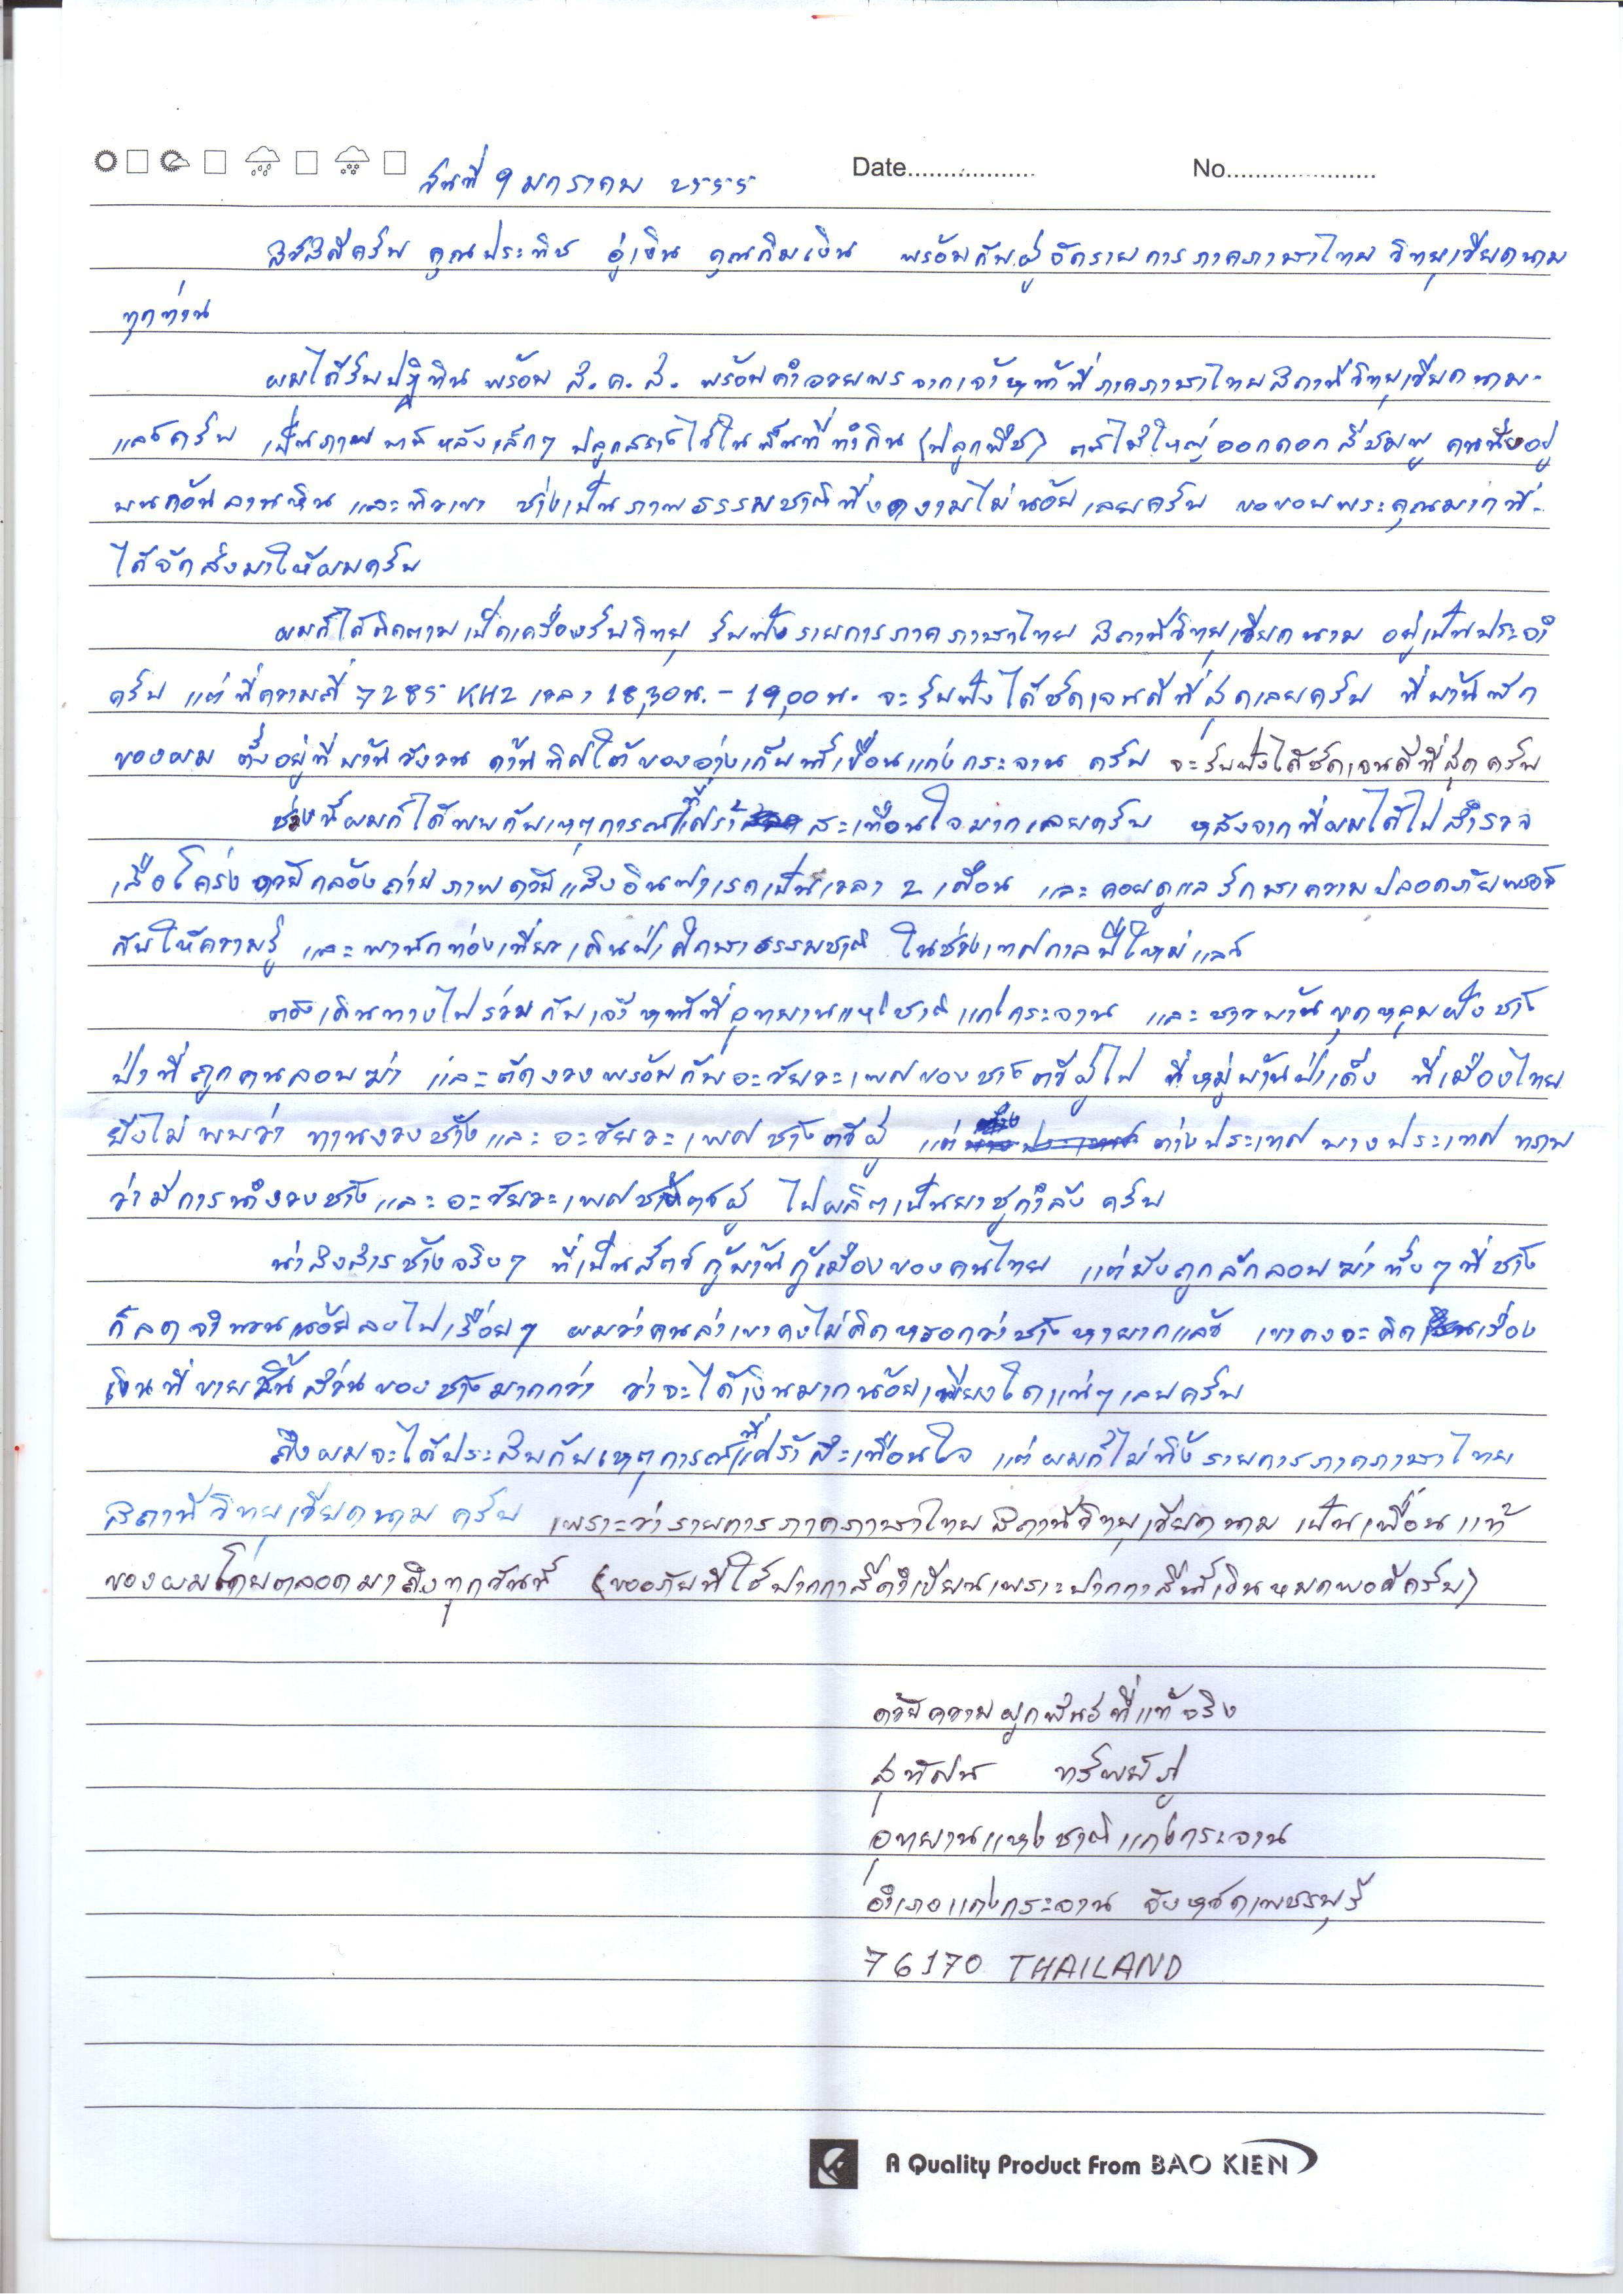 Date..................
No.....................
วันที่ 9 มกราคม ๒๕๕๕
สวัสดีครับ คุณประทีป อู่เงิน คุณกิมเงิน พร้อมกับผู้จัดรายการภาคภาษาไทย วิทยุเวียดนาม
ทุกท่าน
ผมได้รับปฏิทิน พร้อม ส.ค.ส. พร้อมคำอวยพร จากเจ้าหน้าที่ภาคภาษาไทยสถานีวิทยุเวียดนาม
แล้วครับ เป็นภาพบ้านหลังเล็กๆ ปลูกสร้างไว้ในพื้นที่ทำกิน (ปลูกพืช) ต้นไม้ใหญ่ออกดอกสีชมพู
บนก้อนลานหิน และทิวเขา ช่างเป็นภาพธรรมชาติที่งดงามไม่น้อยเลยครับ ขอขอบพระคุณมากที่
ได้จัดส่งมาให้ผมครับ
ผมก็ได้ติดตามเปิดเครื่องรับวิทยุ รับฟังรายการภาคภาษาไทย สถานีวิทยุเวียดนาม อยู่เป็นประจำ
ครับ แต่ที่ความถี่ 7285 KHz เวลา 18,30น. - 19,00น. จะรับฟังได้ชัดเจนดีที่สุดเลยครับ ที่บ้านพัก
ของผม ตั้งอยู่ที่บ้านวังวน ด้านทิศใต้ของอ่างเก็บน้ำเขื่อนแก่งกระจาน ครับ จะรับฟังได้ชัดเจนดีที่สุดครับ
ช่วงนี้ผมก็ได้พบกับเหตุการณ์ที่เศร้าสะเทือนใจมากเลยครับ หลังจากที่ผมได้ไปสำรวจ
เสือโคร่ง ด้วยกล้องถ่ายภาพด้วยแสงอินฟาเรดเป็นเวลา ๒ เดือน และคอยดูแลรักษาความปลอดภัยพร้อม
กับให้ความรู้ และพานักท่องเที่ยวเดินป่าศึกษาธรรมชาติ ในช่วงเทศกาลปีใหม่แล้ว
ต้องเดินทางไปร่วมกับเจ้าหน้าที่อุทยานแห่งชาติแก่งกระจาน และชาวบ้านขุดหลุมฝังช้าง
ป่าที่ถูกคนลอบฆ่า และตัดงวงพร้อมกับอะวัยวะเพศของช้างตัวผู้ไป ที่หมู่บ้านป่าเด็ง ที่เมืองไทย
ยังไม่พบว่า ทานงวงช้างและอะวัยวะเพศช้างตัวผู้ แต่ต่างประเทศบางประเทศ ทราบ
ว่ามีการนำงวงช้างและอะวัยวะเพศช้างตัวผู้ ไปผลิตเป็นยาชูกำลัง ครับ
น่าสงสารช้างจริงๆ ที่เป็นสัตว์กู้บ้านกู้เมืองของคนไทย แต่ยังถูกลักลอบฆ่าทั้งๆที่ช้าง
ก็ลดจำนวนน้อยลงไปเรื่อยๆ ผมว่าคนล่าเขาคงไม่คิดหรอกว่าช้างหายากแล้ว เขาคงจะคิดเรื่อง
เงินที่ขายชิ้นส่วนของช้างมากกว่า ว่าจะได้เงินมากน้อยเพียงใดแน่ๆเลยครับ
ถึงผมจะได้ประสบกับเหตุการณ์ที่เศร้าสะเทือนใจ แต่ผมก็ไม่ทิ้งรายการภาคภาษาไทย
สถานีวิทยุเวียดนาม ครับ เพราะว่ารายการภาคภาษาไทยสถานีวิทยุเวียดนาม เป็นเพื่อนแท้
ของผมโดยตลอดมาถึงทุกวันนี้ (ขออภัยที่ใช้ปากกาสีดำเขียนเพราะปากกาสีน้ำเงินหมดพอดีครับ)
ด้วยความผูกพันธ์ที่แท้จริง
สุทัศน ทรัพย์ภู่
อุทยานแห่งชาติแก่งกระจาน
อำเภอแก่งกระจาน จังหวัดเพชรบุรี
76170 THAILAND
A Quality Product From BAO KIEN